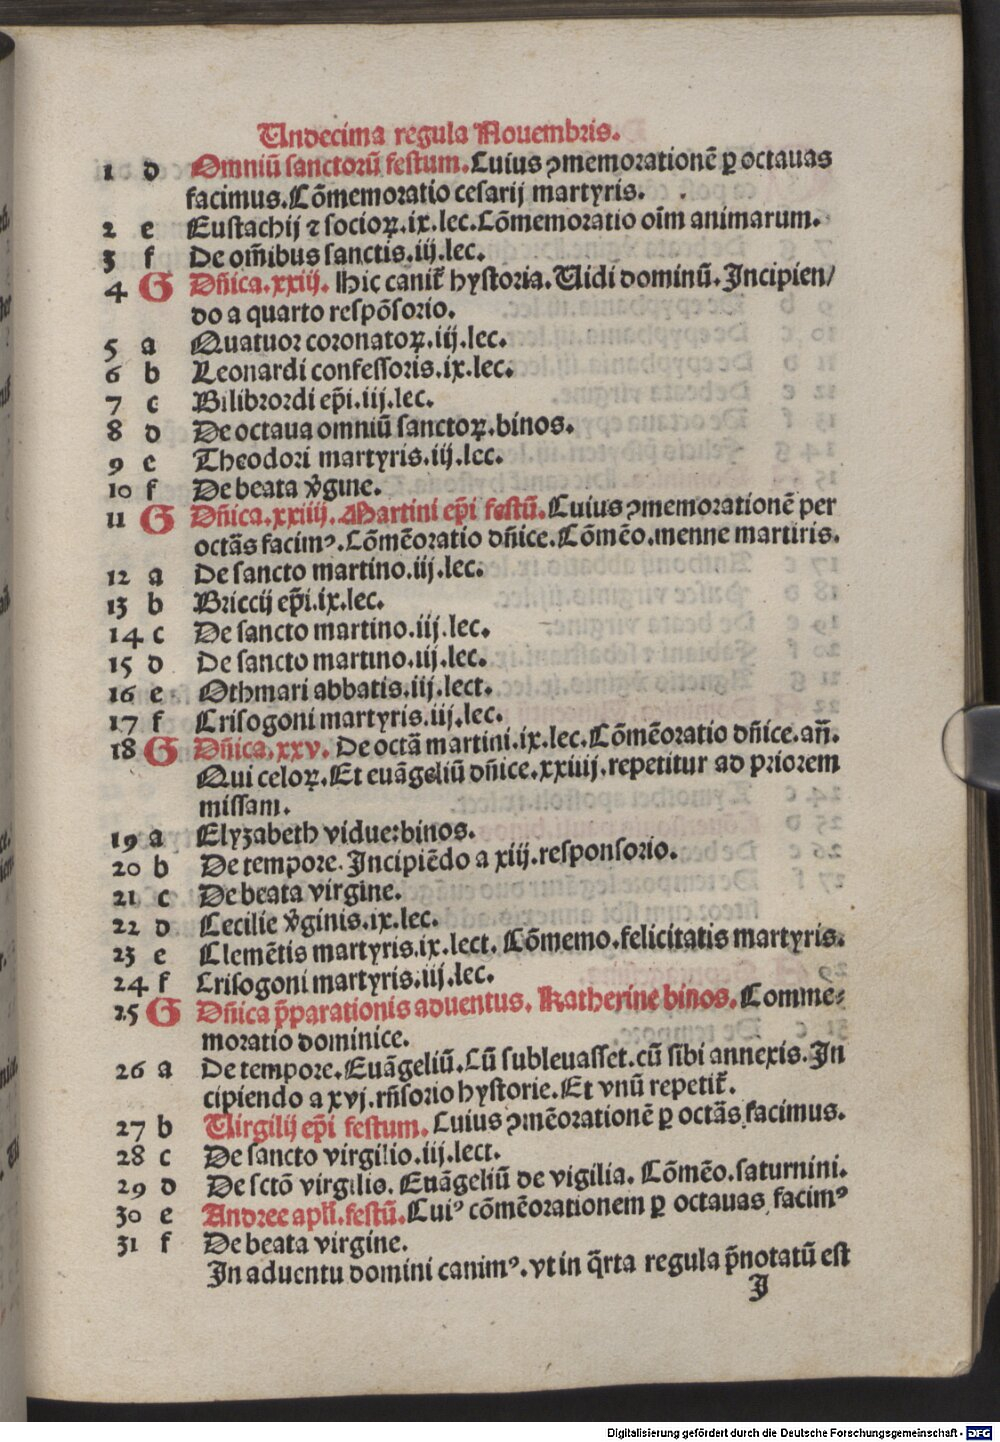 Undecima regula Nouembris.
1 d Omniū sanctorū festum. Cuius ꝯmemorationē ꝑ octauas
facimus. Cōmemoratio cesarij martyris.
2 e Eustachij ⁊ socioꝝ. ix. lec. Cōmemoratio oīm animarum.
3 f De om̄ibus sanctis. iij. lec.
4 G Dn̄ica. xxiij. Hic canit᷑ hystoria. Uidi dominū. Incipien/
do a quarto respōsorio.
5 a Quatuor coronatoꝝ. iij. lec.
6 b Leonardi confessoris. ix. lec.
7 c Bilibrordi ep̄i. iij. lec.
8 d De octaua omniū sanctoꝝ. binos.
9 e Theodori martyris. iij. lec.
10 f De beata v̄gine.
11 G Dn̄ica. xxiiij. Martini ep̄i festū. Cuius ꝯmemorationē per
octās facimꝰ. Cōmēoratio dn̄ice. Cōmēo. menne martiris.
12 a De sancto martino. iij. lec.
13 b Briccij ep̄i. ix. lec.
14 c De sancto martino. iij. lec.
15 d De sancto martino. iij. lec.
16 e Othmari abbatis. iij. lect.
17 f Crisogoni martyris. iij. lec.
18 G Dn̄ica. xxv. De octā martini. ix. lec. Cōmēoratio dn̄ice. an̄.
Qui celoꝝ. Et euāgeliū dn̄ice. xxiiij. repetitur ad priorem
missam.
19 a Elyzabeth vidue: binos.
20 b De tempore. Incipiēdo a xiij. responsorio.
21 c De beata virgine.
22 d Cecilie v̄ginis. ix. lec.
23 e Clemētis martyris. ix. lect. Cōmemo. felicitatis martyris.
24 f Crisogoni martyris. iij. lec.
25 G Dn̄ica p̄parationis aduentus. Katherine binos. Comme⸗
moratio dominice.
26 a De tempore. Euāgeliū. Cū subleuasset. cū sibi annexis. In
cipiendo a xvj. rn̄sorio hystorie. Et vnū repetit᷑.
27 b Uirgilij ep̄i festum. Cuius ꝯmēorationē ꝑ octās facimus.
28 c De sancto virgilio. iij. lect.
29 d De sctō virgilio. Euāgeliū de vigilia. Cōmēo. saturnini.
30 e Andree apl̄i. festū. Cuiꝰ cōmēorationem ꝑ octauas facimꝰ
31 f De beata virgine.
In aduentu domini canimꝰ. vt in q̄rta regula p̄notatū est
J
Digitalisierung gefördert durch die Deutsche Forschungsgemeinschaft - DFG